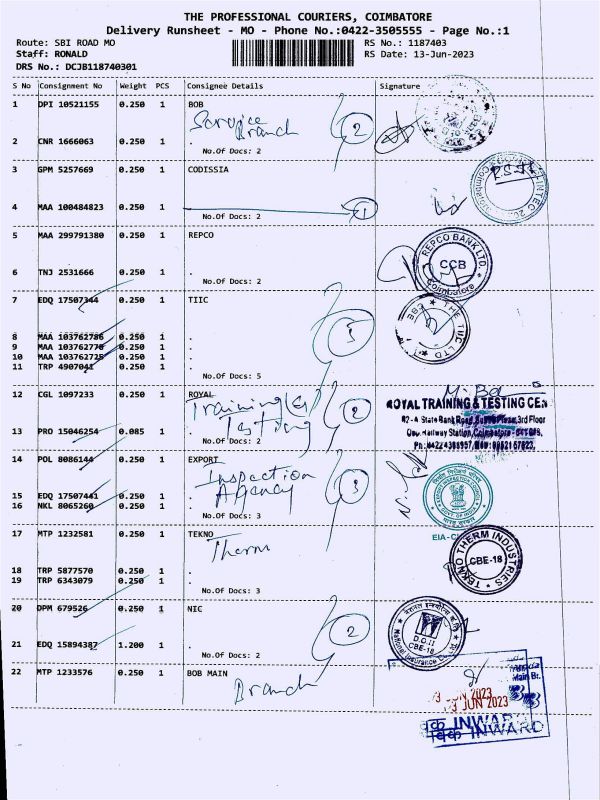 THE PROFESSIONAL COURIERS, COIMBATORE
Delivery Runsheet - MO - Phone No.:0422-3505555 - Page No.:1
Route: SBI ROAD MO
RS No.: 1187403
Staff: RONALD
RS Date: 13-Jun-2023
DRS No.: DCJB118740301
S No Consignment No Weight PCS Consignee Details Signature
1 DPI 10521155 0.250 1 BOB
Service Branch 2
2 CNR 1666063 0.250 1 .
No.Of Docs: 2
3 GPM 5257669 0.250 1 CODISSIA
4 MAA 100484823 0.250 1 .
No.Of Docs: 2
5 MAA 299791380 0.250 1 REPCO
REPCO BANK LTD. CCB Coimbatore
6 TNJ 2531666 0.250 1 .
No.Of Docs: 2
7 EDQ 17507344 0.250 1 TIIC
THE TIIC LTD CBE
8 MAA 103762786 0.250 1 .
9 MAA 103762778 0.250 1 .
10 MAA 103762725 0.250 1 .
11 TRP 4907041 0.250 1 .
No.Of Docs: 5
12 CGL 1097233 0.250 1 ROYAL
Training & Testing 2
ROYAL TRAINING & TESTING CEN
13 PRO 15046254 0.085 1 .
No.Of Docs: 2
14 POL 8086144 0.250 1 EXPORT
Inspection Agency 3
15 EDQ 17507441 0.250 1 .
16 NKL 8065260 0.250 1 .
No.Of Docs: 3
17 MTP 1232581 0.250 1 TEKNO
Therm
TEKNO THERM INDUSTRIES CBE-18
18 TRP 5877570 0.250 1 .
19 TRP 6343079 0.250 1 .
No.Of Docs: 3
20 DPM 679526 0.250 1 NIC
2
D.O.II CBE-18
21 EDQ 15894387 1.200 1 .
No.Of Docs: 2
22 MTP 1233576 0.250 1 BOB MAIN
Branch
Main Br.
JUN 2023
13 JUN 2023
INWARD
INWARD